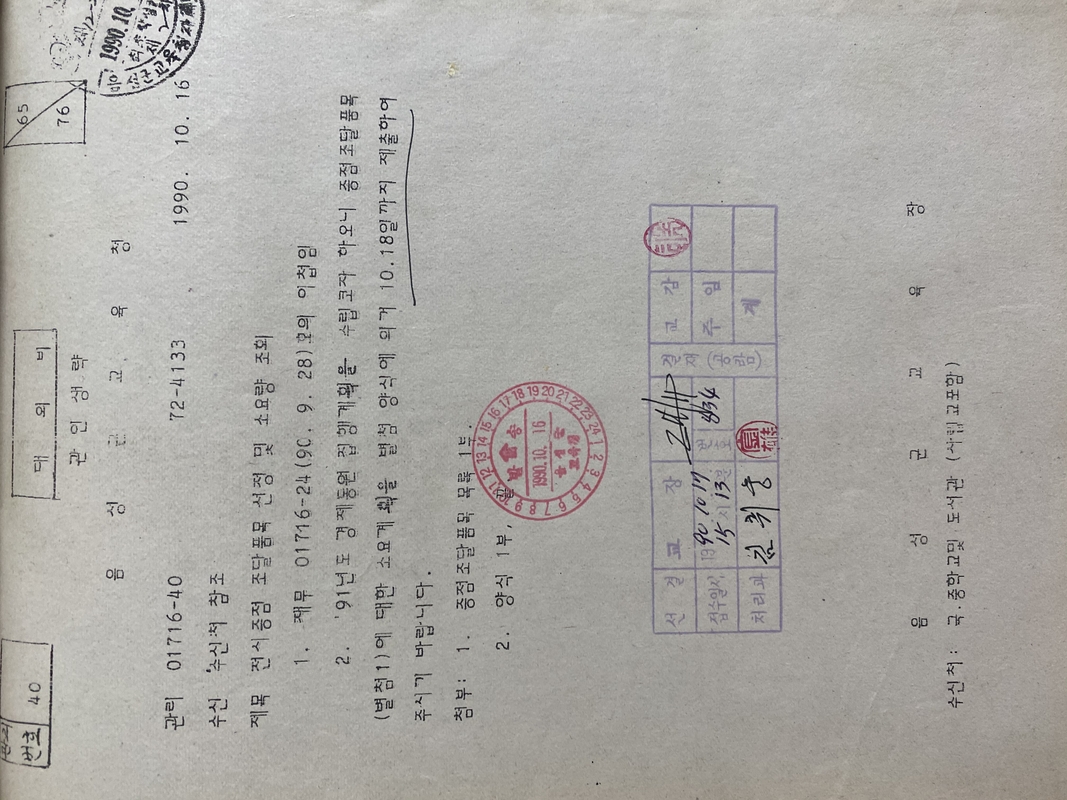 번호 40
대 외 비
65
76
관인생략
1990.10.
음 성 군 교 육 청
관리 01716-40 72-4133 1990. 10. 16
수신 수신처 참조
제목 전시중점 조달품목 선정 및 소요량 조회
1. 재무 01716-24(90. 9. 28)호의 이첩임
2. '91년도 경제동원 집행계획을 수립코자 하오니 중점조달품목
(별첨1)에 대한 소요계획을 별첨 양식에 의거 10.18일까지 제출하여
주시기 바랍니다.
첨부: 1. 중점조달품목 목록 1부.
2. 양식 1부, 끝
발송
1990.10.16
음성군
교육청
선 결 교 장 결재 (공람) 교 감
접수일시 1990.10.17 15시 13분 번호 834 주 임
처리과 계
음 성 군 교 육 장
수신처: 국·중학교및 도서관(사립교포함)